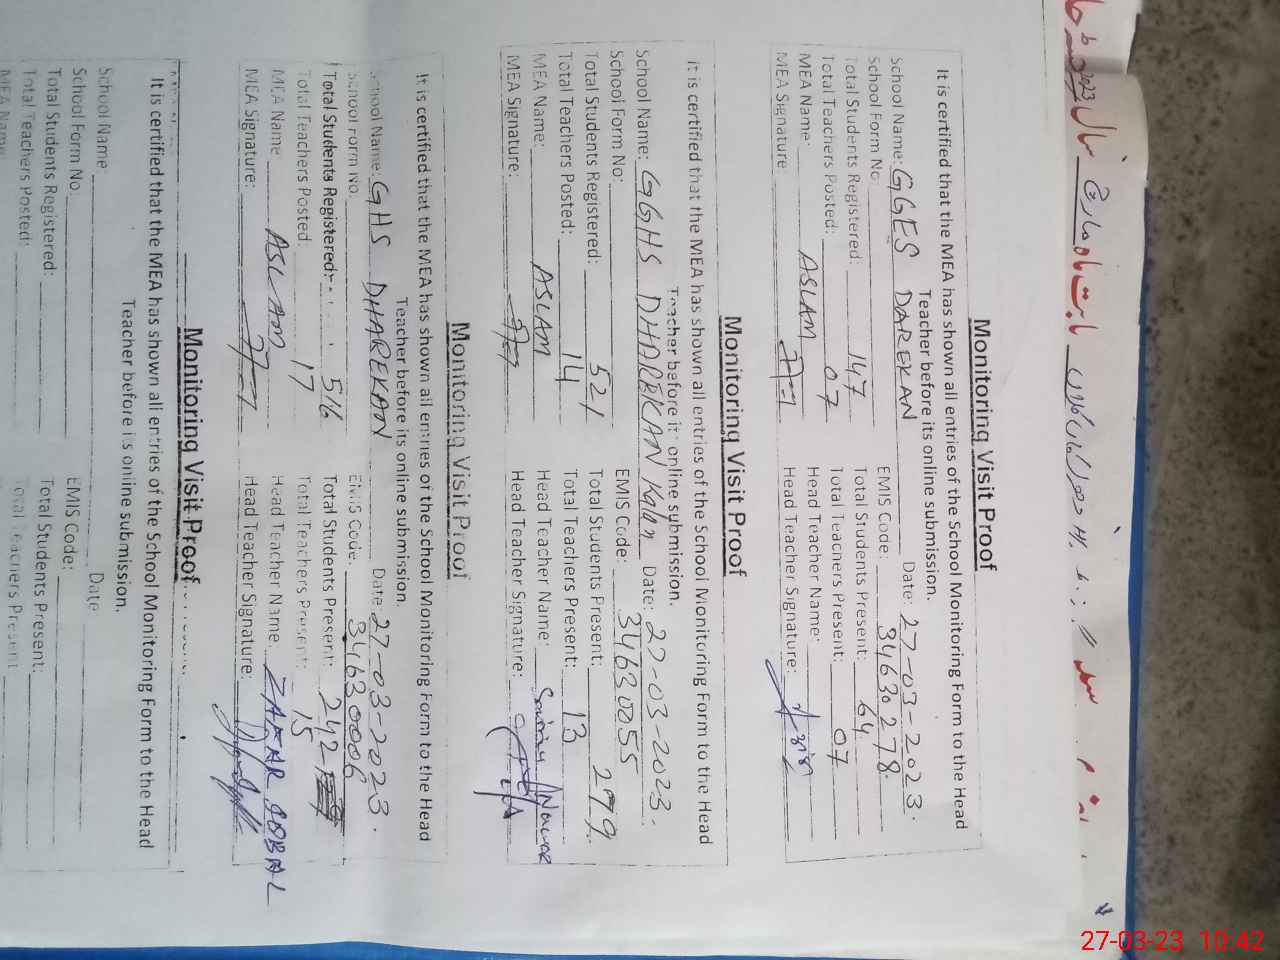 Monitoring Visit Proof
It is certified that the MEA has shown all entries of the School Monitoring Form to the Head
Teacher before its online submission.
School Name: GGES DAREKAN Date: 27-03-2023.
School Form No EMIS Code: 34630278.
Total Students Registered: 147 Total Students Present: 64
Total Teachers Posted: 07 Total Teachers Present: 07
MEA Name: ASLAM Head Teacher Name:
MEA Signature: Head Teacher Signature:
Monitoring Visit Proof
It is certified that the MEA has shown all entries of the School Monitoring Form to the Head
Teacher before it online submission.
School Name: GGHS DHAREKAN Kalan Date: 27-03-2023.
School Form No: EMIS Code: 34630055
Total Students Registered: 521 Total Students Present: 279
Total Teachers Posted: 14 Total Teachers Present: 13
MEA Name: ASLAM Head Teacher Name:
MEA Signature: Head Teacher Signature:
Monitoring Visit Proof
It is certified that the MEA has shown all entries of the School Monitoring Form to the Head
Teacher before its online submission.
School Name: GHS DHAREKAN Date 27-03-2023.
School Form No. EMIS Code: 34630006
Total Students Registered: 516 Total Students Present: 242
Total Teachers Posted 17 Total Teachers Present: 15
MEA Name ASLAM Head Teacher Name. ZAFAR IQBAL
MEA Signature: Head Teacher Signature:
Monitoring Visit Proof
It is certified that the MEA has shown all entries of the School Monitoring Form to the Head
Teacher before its online submission.
School Name Date
School Form No. EMIS Code:
Total Students Registered: Total Students Present:
Total Teachers Posted: Total Teachers Present
MEA Name
27-03-23 10:42